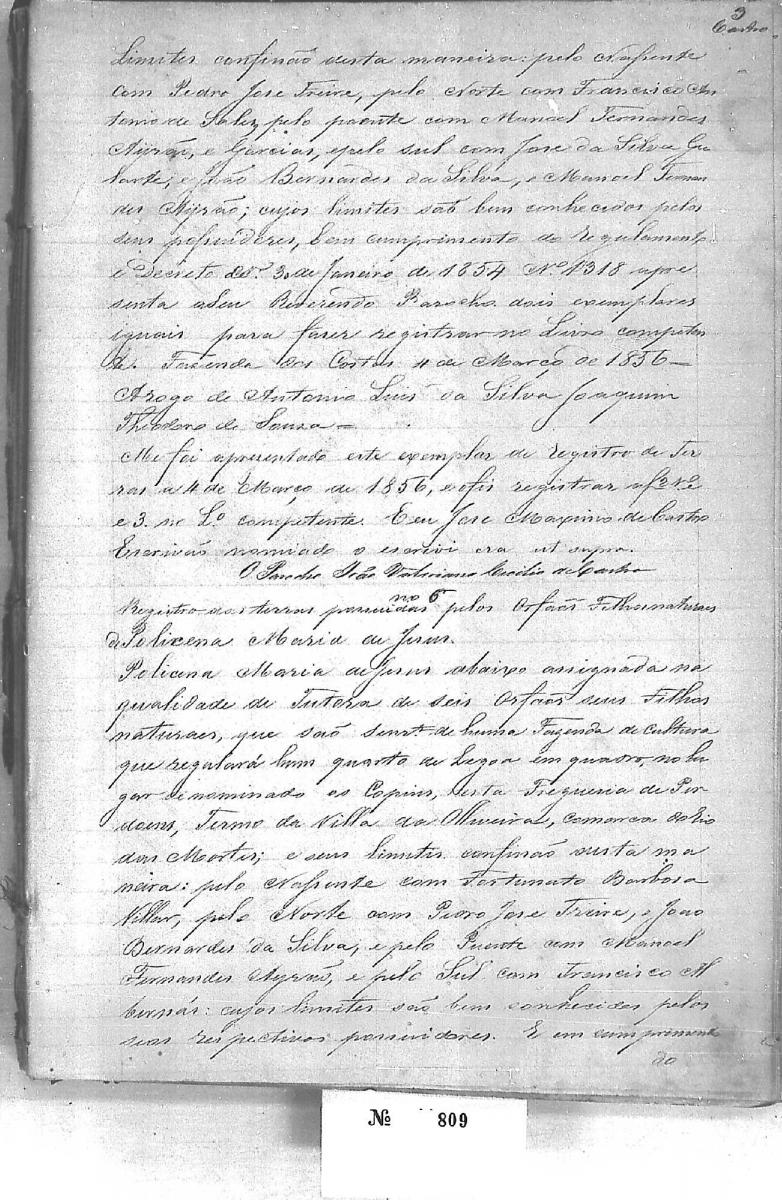 3
Castro
Limites confinão desta maneira: pelo Nassente
com Pedro Jose Freire, pelo Norte com Francisco An
tonio de Salis, pelo poente com Manoel Fernandes
Ayrão, e Garcias, epelo sul com Jose da Silva Gu
larte, e João Bernardes da Silva, e Manoel Fernan
des Ayrão; cujos limites são bem conhecidos pelos
seus possuideres, E em cumprimento do regulamento
e Decreto de 30 de Janeiro de 1854 Nº 1318 apre
senta aSeu Reverendo Parocho dois exemplares
iguais para fazer registrar no Livro competen
te. Fazenda das Costas 4 de Março de 1856 —
Arogo de Antonio Luis da Silva Joaquim
Theodoro de Souza —
Me foi apresentado este exemplar de registro de Ter
ras a 4 de Março de 1856, eofis registrar af 2 Vº
e 3. no Lº competente. E eu Jose Maximo de Castro
Escrivão nomiado o escrivi era ut supra.
O Parocho João Valeriano Cecilio de Castro
no 6
Registro das terras possuidas pelos Orfaõs Filhos naturaes
de Policena Maria de Jesus.
Policena Maria de Jesus abaixo assignada na
qualidade de Tutora de seis Orfaõs seus Filhos
naturaes, que saõ senrs de huma Fazenda de cultura
que regulará hum quarto de Legoa em quadro, no lu
gar denominado os Copins, desta Freguezia de Per
doens, Termo da Villa da Olliveira, Comarca do Rio
das Mortes; e seus limites confinão desta ma
neira: pelo Nassente com Fortunato Barbosa
Villar, pelo Norte com Pedro Jose Freire, e João
Bernardes da Silva, e pelo Puente com Manoel
Fernandes Ayrão, e pelo Sul com Francisco Al
bernás: cujos limites são bem conhecidos pelos
seos respectivos possuidores. E em cumprimento
do
Nº 809